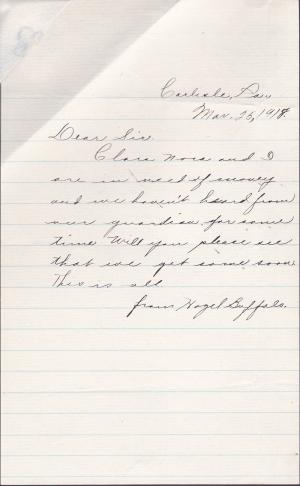 Carlisle, Pa.
Mar. 25, 1918.
Dear Sir
Clara Nora and I
are in need of money
and we haven't heard from
our guardian for some
time. Will you please see
that we get some soon.
This is all
from Hazel Buffalo.